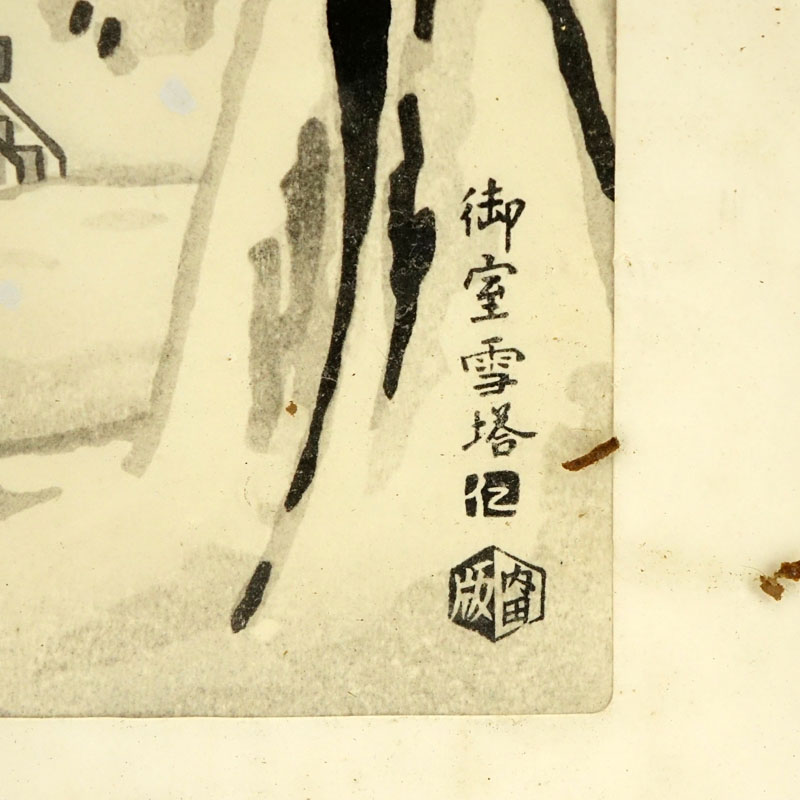 御室雪塔
内田
版